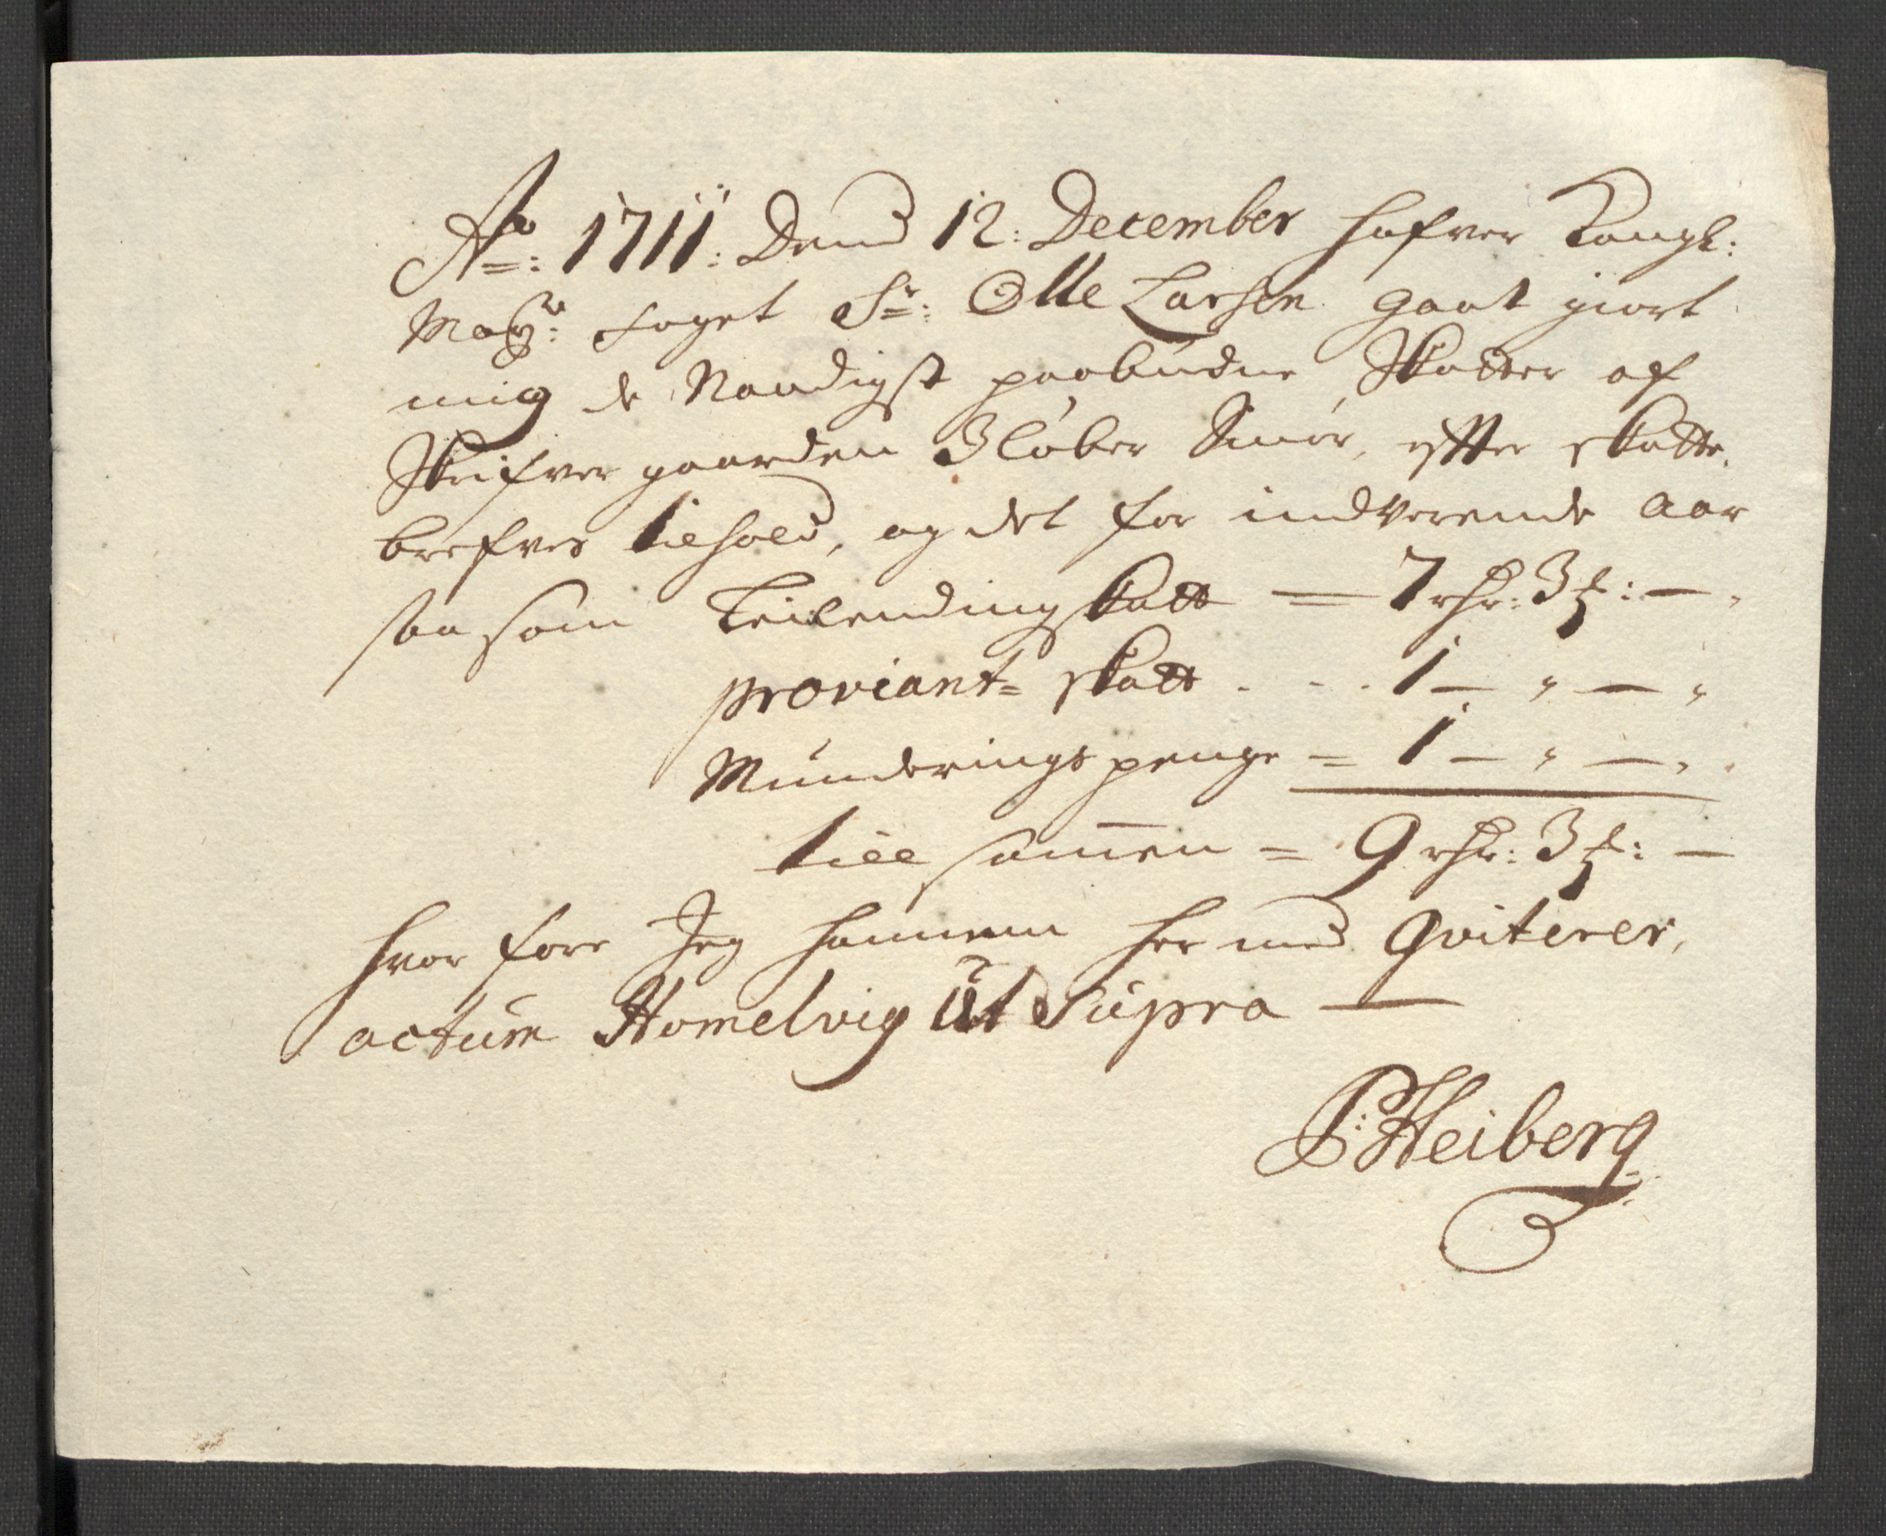 Ao: 1711: Dend 12: December hafver Kongl:
Mayts: foget Sr: Olle Larsen gaat giort
mig de Naadigst paabudne Skatter af
Skrifver gaarden 3 løber Smør, efter skatte
brefves tilhold, og det for indverende aar
saa som Leilending skatt = 7 rdr: 3 ₰: —
proviant= skatt . . . 1 — " — "
Munderings penge = 1 — " — "
till samen = 9 rdr: 3 ₰: —
hvor fore Jeg hannem her med Qviterer,
actum Homelvig Ut Supra —
P: Heiberg